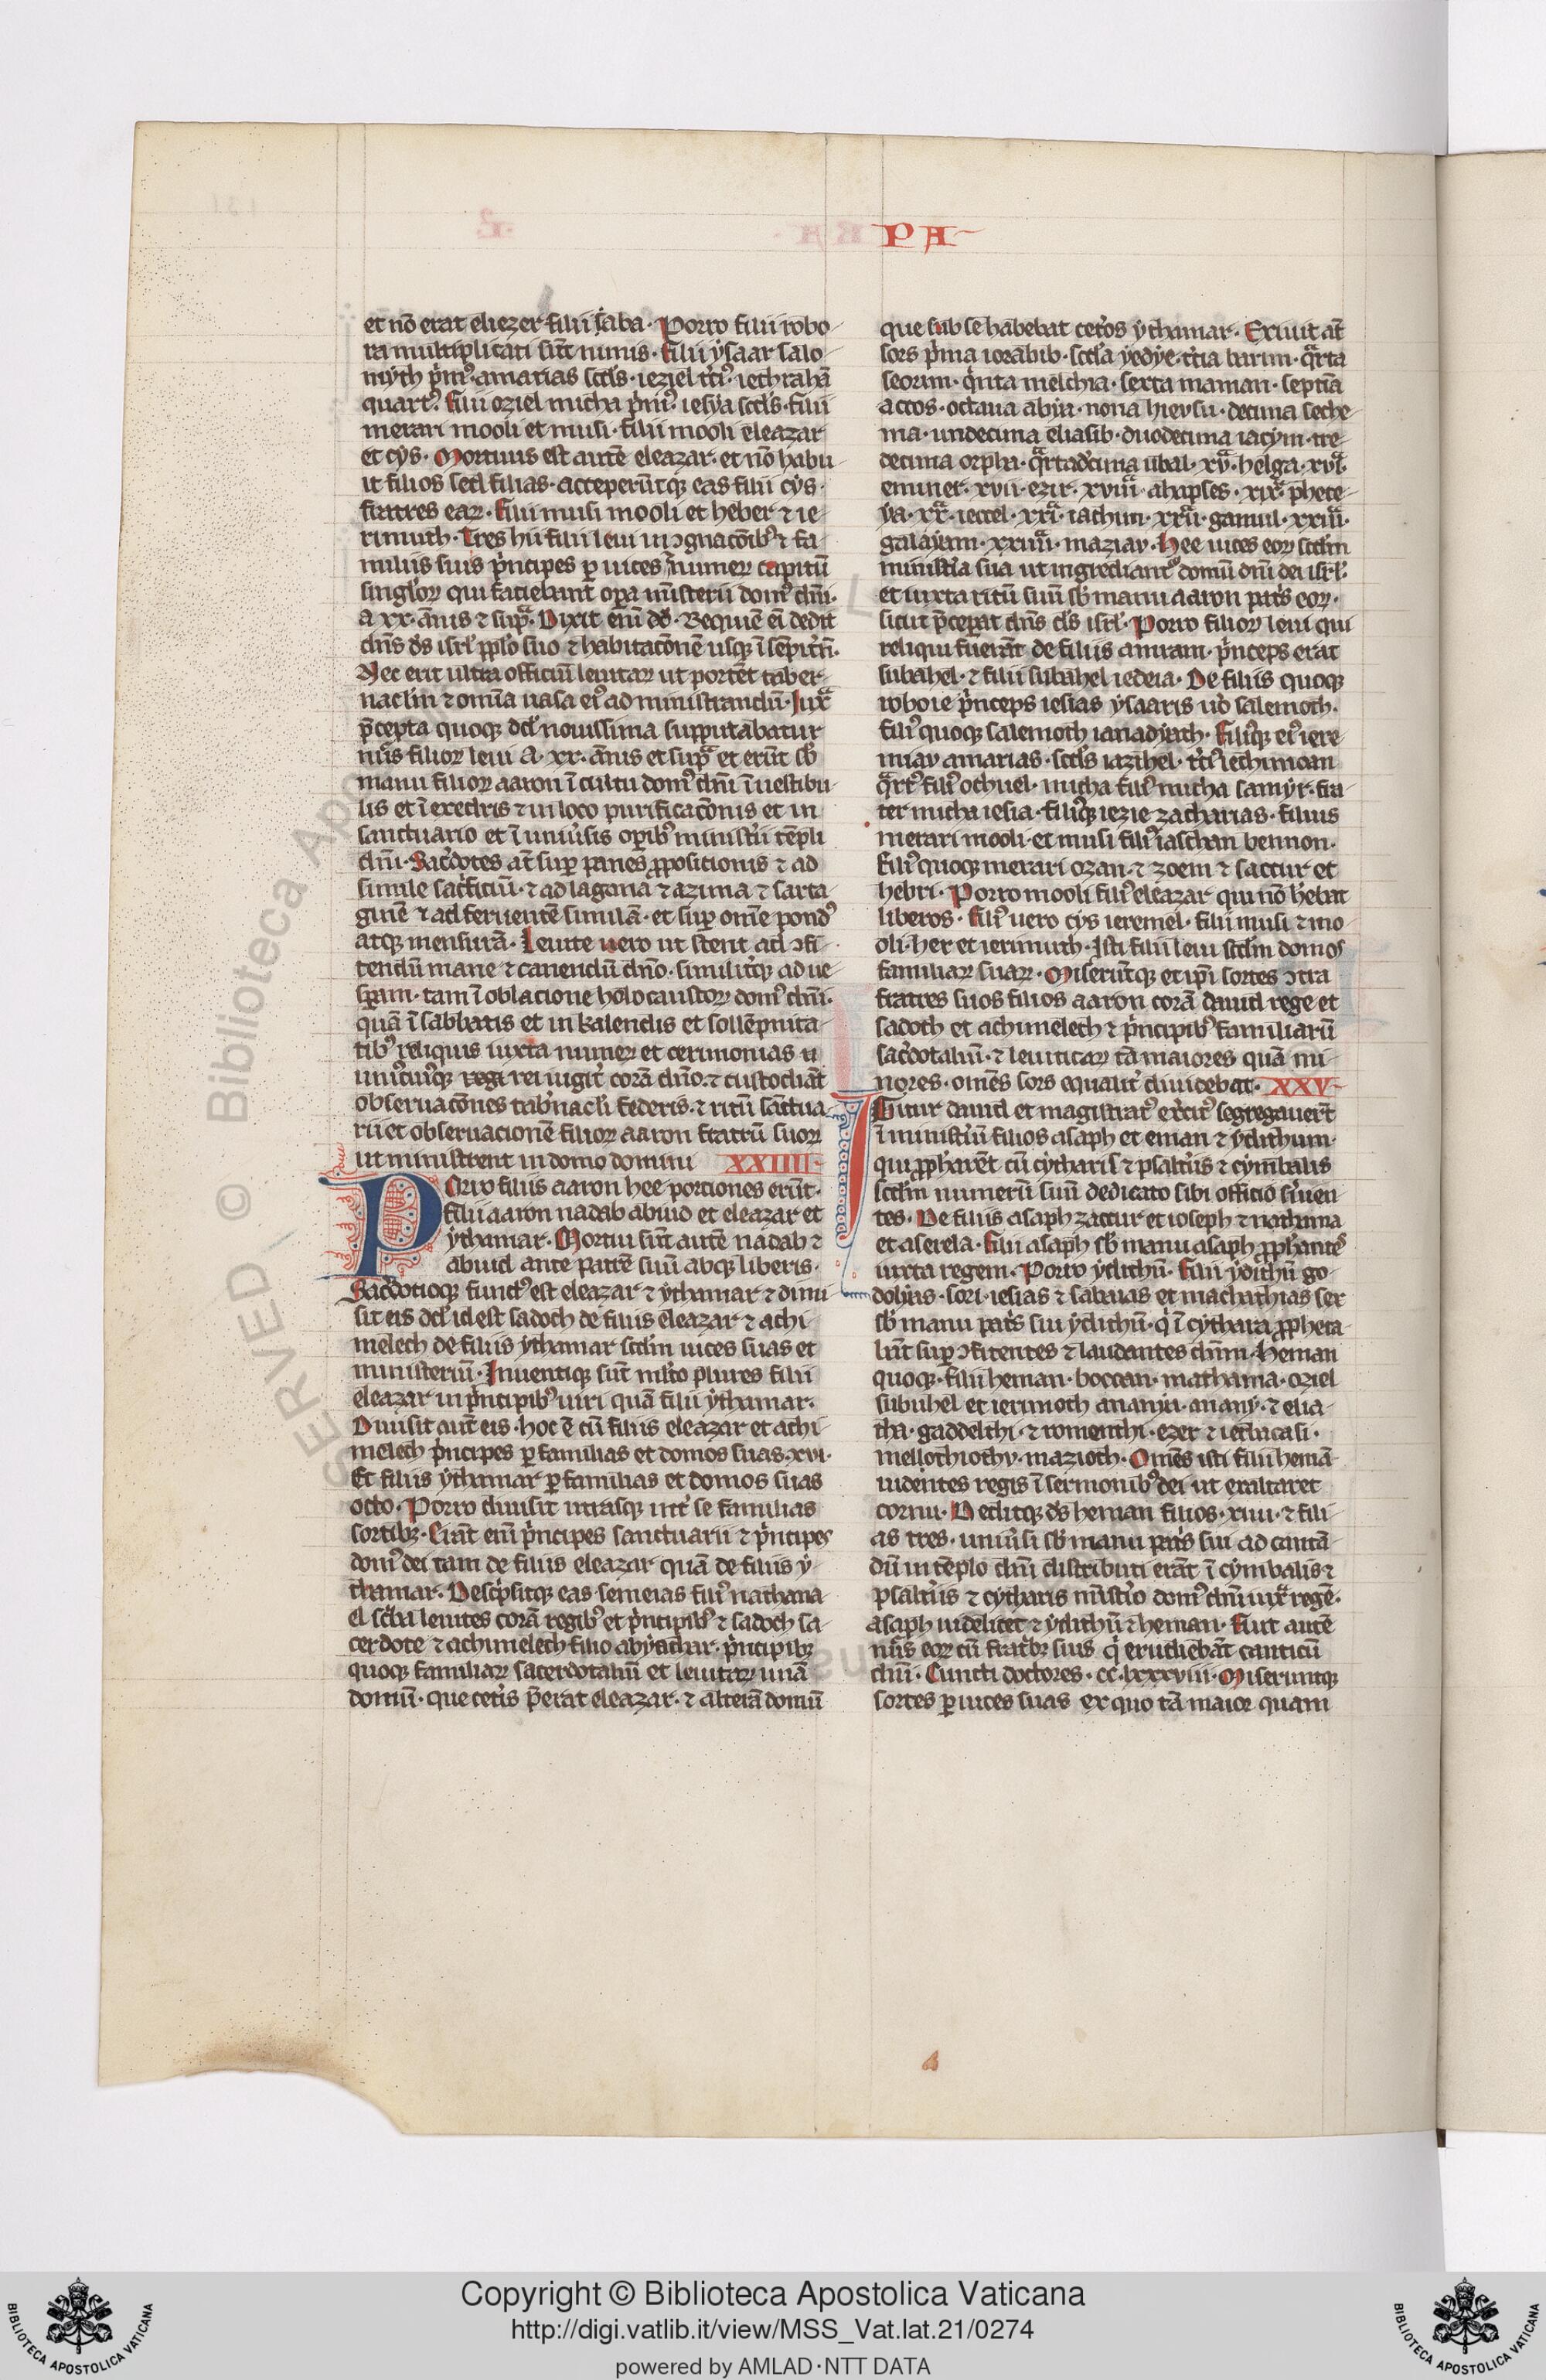 PA
et nō erat eliezer filii saba. Porro filii robo
ra multiplicati sūt nimis. Filii ysaar salo
myth p̄mꝰ. amarias scd̄s. ieziel tc̄iꝰ. iethrahā
quartꝰ. Filii oziel micha p̄mꝰ. iesya scd̄s. filii
merari mooli et musi. filii mooli eleazar
et cys. Mortuus est autē eleazar. et nō habu
it filios sed filias. acceperūtqꝫ eas filii cys.
fratres eaꝝ. Filii musi mooli et heber ⁊ ie
rimuth. Tres hii filii leui in ꝯgnacōibꝰ ⁊ fa
miliis suis p̄ncipes ꝑ uices ⁊ numeꝝ capitū
singloꝝ qui faciebant oꝑa mīsterii domꝰ dn̄i.
A xx. ānis ⁊ sup̄. Dixit eni dd̄. Requiē ei dedit
dn̄s ds̄ isrl̄ pplo suo ⁊ habitacōnē usqꝫ ī sēpit̄n̄.
Nec erit ultra officiū leuitaꝝ ut portēt taber
naclm ⁊ omīa uasa eiꝰ ad ministrandū. Iuxͣ
p̄cepta quoqꝫ dd̄ nouissima supputabatur
nūs filioꝝ leui A. xx. ānis et supͣ et erūt sb̄
manu filioꝝ aaron ī cultu domꝰ dn̄i ī uestibu
lis et ī exedris ⁊ in loco purificacōnis et in
sanctuario et ī uniūsis oꝑibꝰ ministīi tēpli
dn̄i. Sac̄dotes at̄ suꝑ panes ꝓpositionis ⁊ ad
simile sac̄ficiū. ⁊ ad lagana ⁊ azima ⁊ sarta
ginē ⁊ ad feruentē similā. et suꝑ om̄e pondꝰ
atqꝫ mensurā. Leuite uero ut stent ad ꝯfi
tendū mane ⁊ canendū dn̄o. similit̄qꝫ ad ue
sꝑam. tam ī oblacione holocaustoꝝ domꝰ dn̄i.
quā ī sabbatis et in kalendis et sollēpnita
tibꝰ reliquis iuxta numeꝝ et cerimonias u
niūciūsqꝫ regi rei iugit̄ corā dn̄o. ⁊ custodiāt
obseruacōnes tab̄nacli federis. ⁊ ritū sāctua
rii et obseruacionē filioꝝ aaron fratrū suoꝝ
ut ministrent in domo domini XXIIII
Porro filiis aaron hee portiones erūt.
filii aaron nadab abiud et eleazar et
ythamar. Mortui sūt autē nadab ⁊
abiud ante patrē suū absqꝫ liberis.
Sac̄dotioqꝫ functꝰ est eleazar ⁊ ythamar ⁊ diui
sit eis dd̄ id est sadoch de filiis eleazar ⁊ achi
melech de filiis ythamar scdm uices suas et
ministeriū. Inuentiqꝫ sūt ml̄to plures filii
eleazar in p̄ncipibꝰ uiri quā filii ythamar.
Diuisit aut̄ eis. hoc ē cū filiis eleazar et achi
melech p̄ncipes ꝑ familias et domos suas. xvi.
Et filiis ythamar ꝑ familias et domos suas
octo. Porro diuisit utrasqꝫ int̄ se familias
sortibꝫ. Erāt eni p̄ncipes sanctuarii ⁊ p̄ncipes
domꝰ dei tam de filiis eleazar quā de filiis y
thamar. Descp̄sitqꝫ eas semeias filiꝰ nathana
el sc̄ba leuites corā regibꝰ et p̄ncipibꝰ ⁊ sadoch sa
cerdote ⁊ achimelech filio abyathar. p̄ncipibꝫ
quoqꝫ familiaꝝ sacerdotaliū et leuitaꝝ unā
domū. que cet̄is p̄erat eleazar. ⁊ alterā domū
que sub se habebat cet̄os ythamar. Exiuit at̄
sors p̄ma iorabib. scd̄a yedye. tc̄ia harim. qͣrta
seorim. qͥnta melchia. sexta maman. septīa
accos. octaua abya. nona hieusu. decima seche
ma. undecima eliasib. duodecima iacym. tre
decima orpha. qͣrtadc̄ima isbal. xvͣ. helga. xviͣ.
eminer. xvii. ezir. xviiiͣ. ahapses. xixͣ. phete
ya. xxͣ. ieccel. xxiͣ. iachim. xxiiͣ. gamul. xxiiiͣ.
galayam. xxiiiiͣ. maziav. Hee uices eoꝝ scdm
minist̄ia sua ut ingrediantꝰ domū dn̄i dei isrl̄.
et iuxta ritū suū sb̄ manu aaron pat̄s eoꝝ.
sicut p̄ceꝑat dn̄s ds̄ isrl̄. Porro filioꝝ leui qui
reliqui fuerāt de filiis amram. p̄nceps erat
subahel. ⁊ filii subahel iedeia. De filiis quoqꝫ
roboie p̄nceps iesias ysaaris uō salemoth.
filiꝰ quoqꝫ salemoth ianadyath. Filiꝰqꝫ eiꝰ iere
miav amarias. scd̄s iazihel. tc̄iꝰ iechimoan
qͣrtꝰ filiꝰ ochuel. micha filiꝰ micha samyr. fra
ter micha iesia. filiꝰqꝫ iezie zacharias. filius
merari mooli. et musi filiꝰ iaschan bennon.
filiꝰ quoqꝫ merari ozan. ⁊ zoem ⁊ saccur et
hebri. Porro mooli filiꝰ eleazar qui nō hēbat
liberos. filiꝰ uero cys ieremel. filii musi ⁊ mo
oli. her et ierimuth. Isti filii leui scdm domos
familiaꝝ suaꝝ. Miserūtqꝫ et ip̄i sortes ꝯtra
fratres suos filios aaron corā dauid rege et
sadoth et achimelech ⁊ p̄ncipibꝰ familiarū
sac̄dotaliū. ⁊ leuiticaꝝ tā maiores quā mi
nores. omēs sors equalit̄ diuidebat. XXV
Igitur dauid et magistratꝰ exc̄itꝰ segregauer̄t
ī minist̄iū filios asaph et eman ⁊ ydithum.
qui ꝓph̄arēt cū cytharis ⁊ psalt̄iis ⁊ cymbalis
scdm numerū suū dedicato sibi officio s̄uien
tes. De filiis asaph zaccur et ioseph ⁊ nathima
et aserela. Filii asaph sb̄ manu asaph ꝓph̄antꝭ
iuxta regem. Porro ydithū. Filii ydithū go
dolyas. sori. iesias ⁊ sabaias et mathathias sex
sb̄ manu pat̄s sui ydithū. qͥ ī cythara ꝓpheta
bāt suꝑ ꝯfitentes ⁊ laudantes dn̄m. Heman
quoqꝫ. filii heman. boccan. mathama. oziel
subuhel et ierimoth ananya. anany. ⁊ elia
tha. gaddelthi. ⁊ romenthi. ezer ⁊ iesbacasi.
mellothiothv. mazioth. Omēs isti filii hemā
uidentes regis ī sermonibꝰ dei ut exaltaret
cornu. Deditqꝫ ds̄ heman filios. xiiii. ⁊ fili
as tres. uniūsi sb̄ manu pat̄s sui ad cantā
dū in tēplo dn̄i distributi erāt ī cymbalis ⁊
psalt̄iis ⁊ cytharis mīst̄io domꝰ dn̄i iuxͣ regē.
asaph uidelicet ⁊ ydithū ⁊ heman. Fuit autē
nūs eoꝝ cū fratibꝫ suis qͥ erudiebāt canticū
dn̄i. Cuncti doctores. cc. lxxxviii. Miseruntqꝫ
sortes ꝑ uices suas ex quo tā maior quam
Copyright © Biblioteca Apostolica Vaticana
http://digi.vatlib.it/view/MSS_Vat.lat.21/0274
powered by AMLAD·NTT DATA
BIBLIOTECA APOSTOLICA VATICANA
BIBLIOTECA APOSTOLICA VATICANA